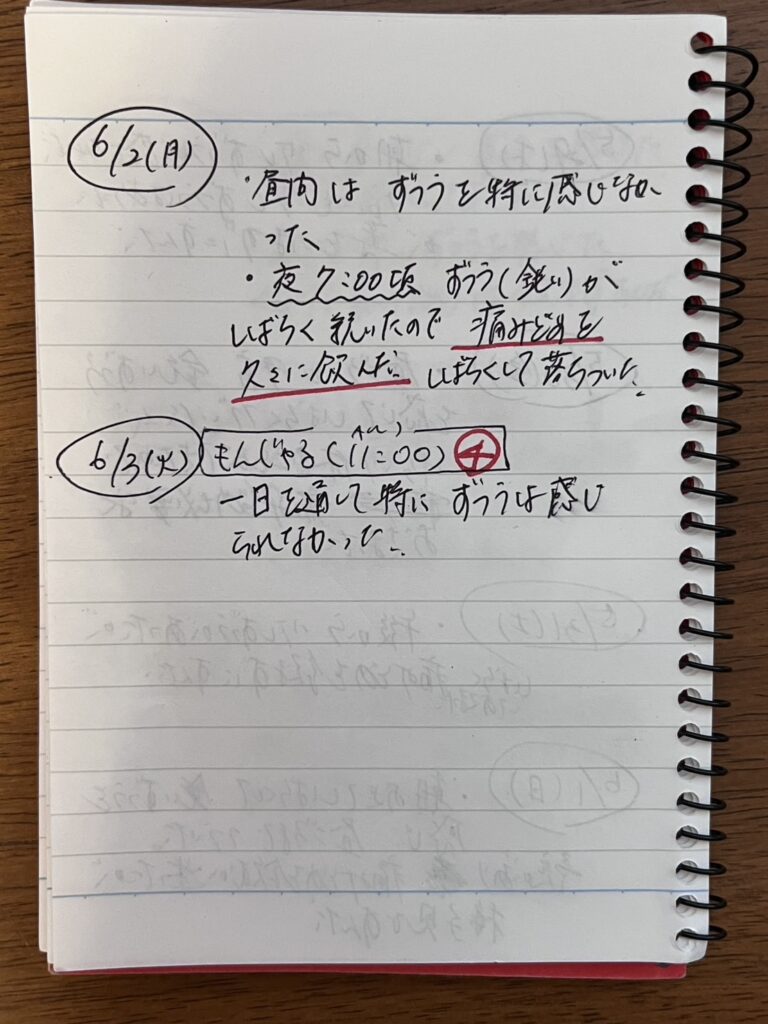 6/2(月)
・昼間は ずつうを特に感じなか
った
・夜7:00頃 ずつう(鋭い)が
しばらく続いたので 痛みどめを
久々に飲んだ。しばらくして落ちついた。
6/3(火) もんじゃる(11:00)
一日を通して特に ずつうは感じ
られなかった。